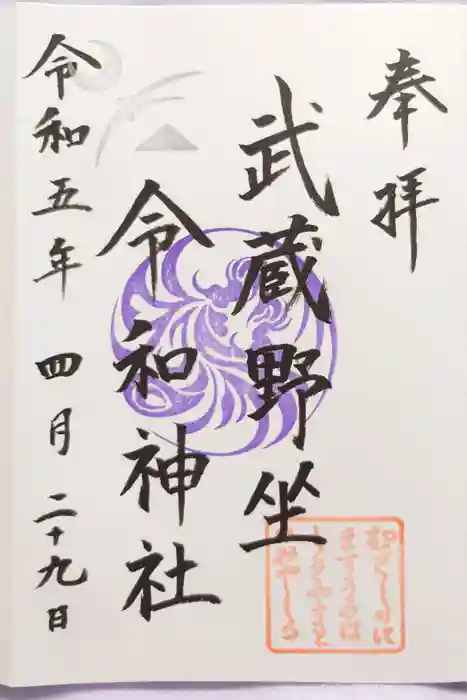 奉拝
武蔵野坐
令和神社
令和五年四月二十九日